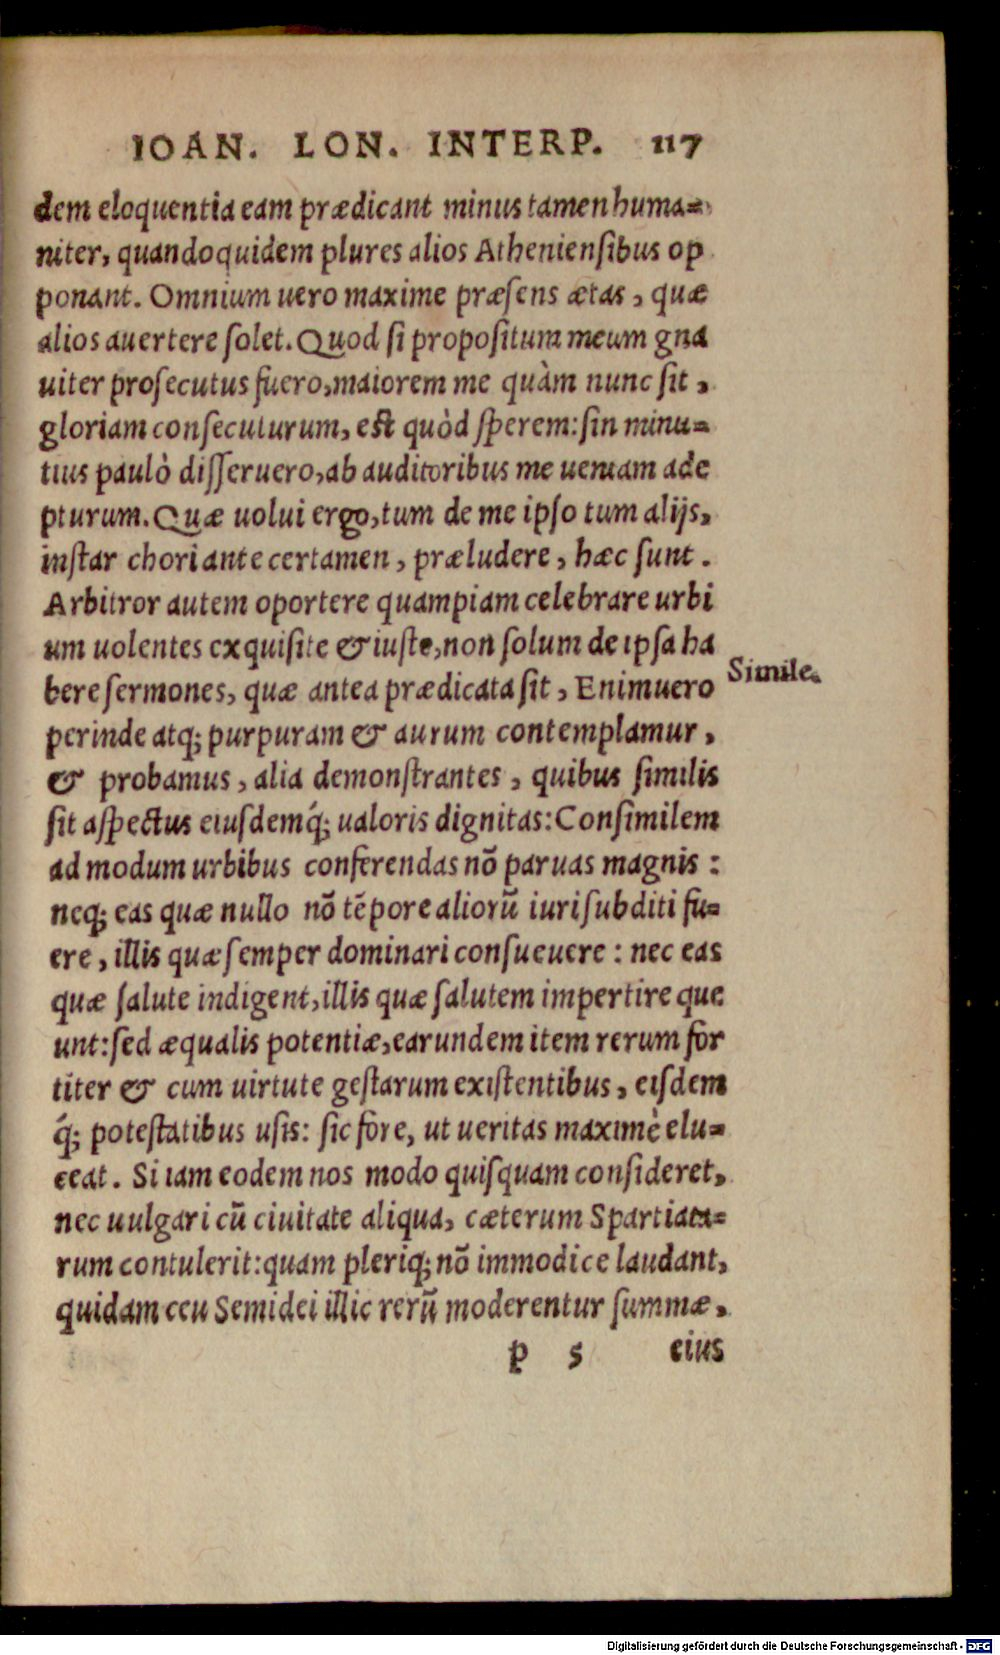 IOAN. LON. INTERP. 117
dem eloquentia eam prædicant minus tamen huma=
niter, quandoquidem plures alios Atheniensibus op
ponant. Omnium uero maxime præsens ætas, quæ
alios auertere solet. Quod si propositum meum gna
uiter prosecutus fuero, maiorem me quàm nunc sit,
gloriam consecuturum, est quòd sperem: sin minu=
tius paulò disseruero, ab auditoribus me ueniam ade
pturum. Quæ uolui ergo, tum de me ipso tum alijs,
instar chori ante certamen, præludere, hæc sunt.
Arbitror autem oportere quampiam celebrare urbi
um uolentes exquisite & iuste, non solum de ipsa ha
bere sermones, quæ antea prædicata sit, Enimuero
Simile.
perinde atq; purpuram & aurum contemplamur,
& probamus, alia demonstrantes, quibus similis
sit aspectus eiusdemq́; ualoris dignitas: Consimilem
ad modum urbibus conferendas nõ paruas magnis:
neq; eas quæ nullo nõ tẽpore aliorũ iuri subditi fu=
ere, illis quæ semper dominari consueuere: nec eas
quæ salute indigent, illis quæ salutem impertire que
unt: sed æqualis potentiæ, earundem item rerum for
titer & cum uirtute gestarum existentibus, eisdem
q́; potestatibus usis: sic fore, ut ueritas maximè elu=
ceat. Si iam eodem nos modo quisquam consideret,
nec uulgari cũ ciuitate aliqua, cæterum Spartiata=
rum contulerit: quam pleriq; nõ immodice laudant,
quidam ceu Semidei illic rerũ moderentur summæ,
p 5 eius
Digitalisierung gefördert durch die Deutsche Forschungsgemeinschaft - DFG